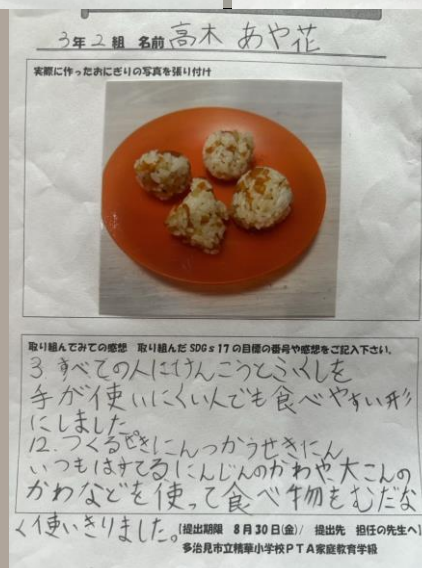 3年2組 名前 高木 あや花
実際に作ったおにぎりの写真を張り付け
取り組んでみての感想 取り組んだSDGs17の目標の番号や感想をご記入下さい。
3 すべての人にけんこうとふくしを
手が使いにくい人でも食べやすい形
にしました
12.つくるせきにんつかうせきにん
いつもはすてるにんじんのかわや、大こんの
かわなどを使って食べ物をむだな
く使いきりました。
【提出期限 8月30日(金)/ 提出先 担任の先生へ】
多治見市立精華小学校PTA家庭教育学級